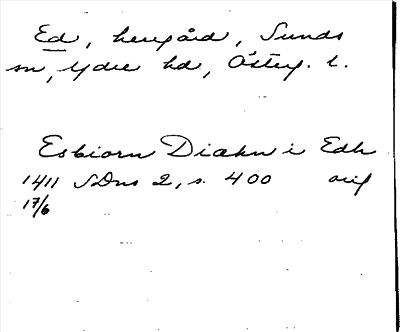 Ed, herrgård, Sunds
sn, Ydre hd, Österg. l.
Esbiorn Diakn i Edh
1411 SDns 2, s. 400 orig
17/6